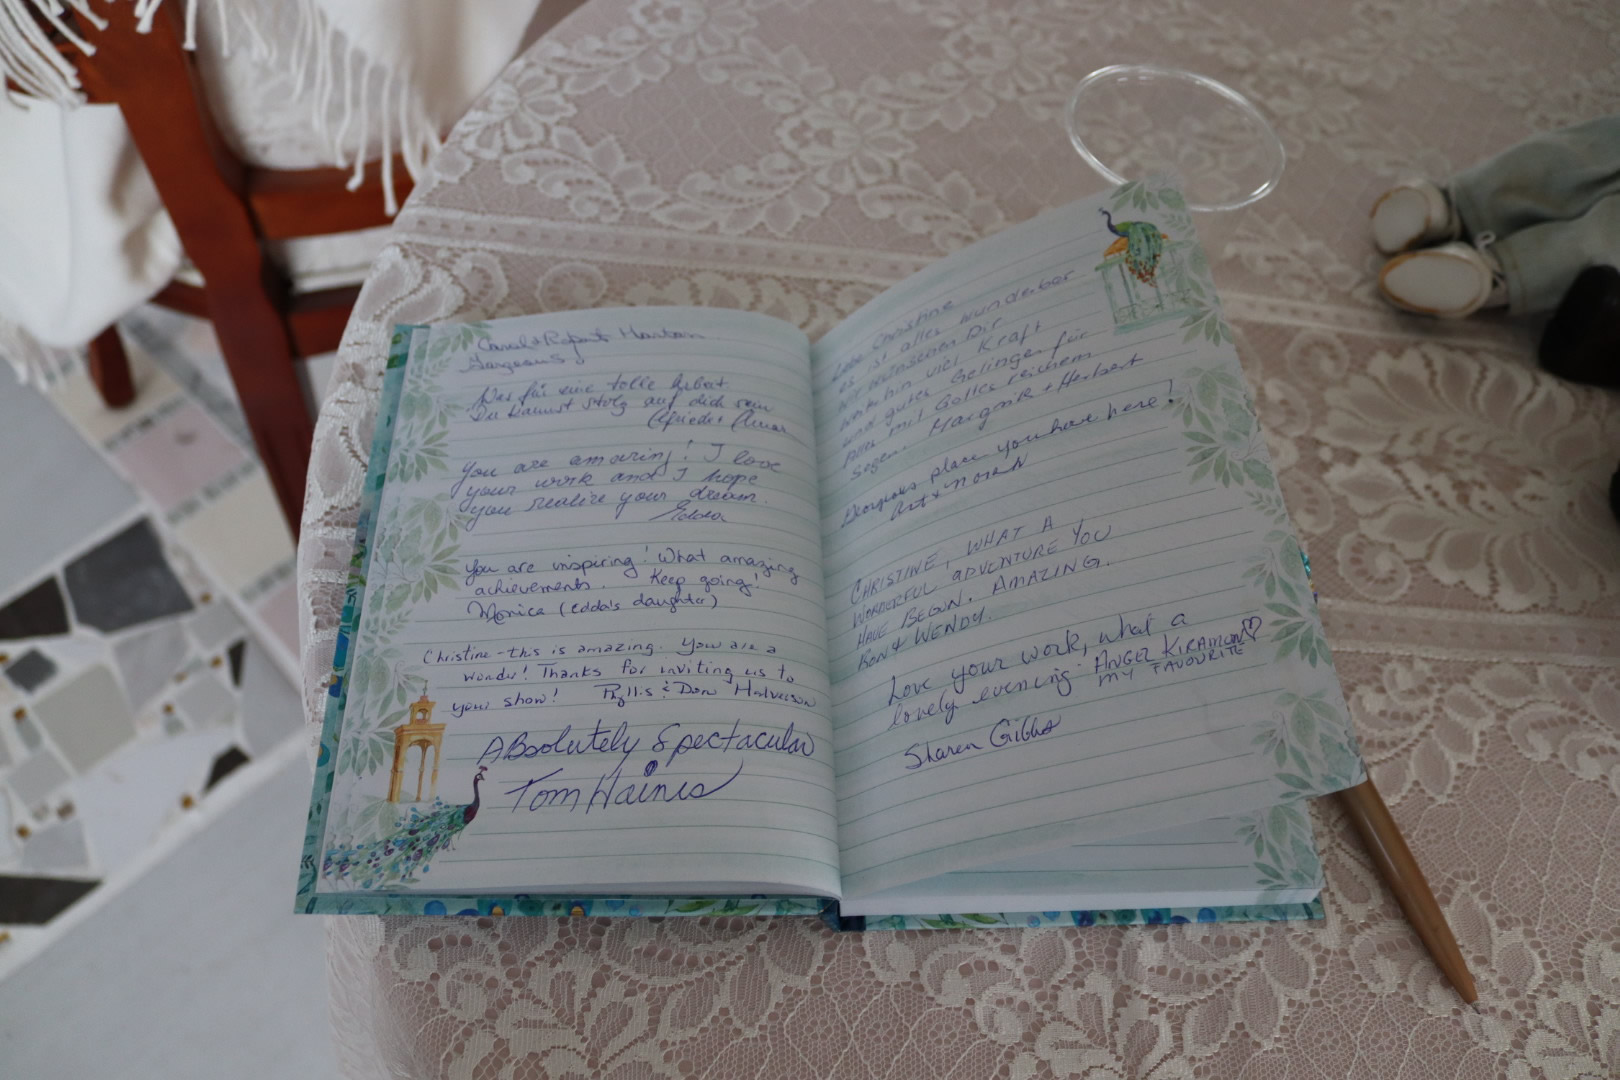 Carol + Rupert
Gorgeous!
Was für eine tolle Arbeit
Du kannst stolz auf dich sein
You are amazing! I love
your work and I hope
you realize your dream.
Edda
You are inspiring! What amazing
achievements. Keep going!
Monica (Edda's daughter)
Christine - this is amazing. You are a
wonder! Thanks for inviting us to
your show! Phyllis & Don Halverson
Absolutely Spectacular
Tom Haines
Liebe Christine
es ist alles wunderbar
Wir wünschen Dir
weiterhin viel Kraft
und gutes Gelingen für
alles mit Gottes reichem
Segen. + Herbert
Gorgeous place you have here!
Art + Norah
CHRISTINE, WHAT A
WONDERFUL ADVENTURE YOU
HAVE BEGUN. AMAZING.
RON & WENDY.
Love your work, what a
lovely evening. ANGEL KIRAMON♡
MY FAVOURITE
Sharen Gibbs